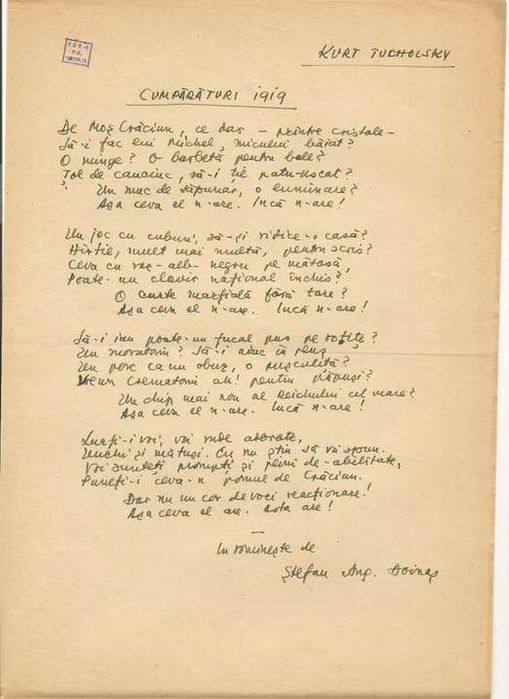 KURT TUCHOLSKY
CUMPĂRĂTURI 1919
De Moș Crăciun, ce dar – printre cristale –
Să-i fac lui Michel, micului băiat?
O minge? O barbetă pentru bale?
Tol de cauciuc, să-i ție patu-uscat?
Un muc de săpunar, o luminare?
Așa ceva el n-are. Încă n-are!
Un joc cu cuburi, să-și ridice-o casă?
Hîrtie, mult mai multă, pentru scris?
Ceva cu roș-alb-negru pe mătasă?
Poate-un clavir național închis?
O curte marțială fără tare?
Așa ceva el n-are. Încă n-are!
Să-i iau poate-un pus pe rotițe?
Un moratoriu? Să-i aduc în
Un porc ca un obuz, o pușculiță?
Vreun crematoriu pentru
Un chip mai nou al Reichului cel mare?
Așa ceva el n-are. Încă n-are!
Luați-i voi, voi rude adorate,
Unchi și mătuși. Eu nu știu să vă spun.
Voi sunteți prompți și plini de-abilitate,
Puneți-i ceva-n pomul de Crăciun.
Dar nu un cor de voci reacționare!
Așa ceva el are. Asta are!
În românește de
Ștefan Aug. Doinaș